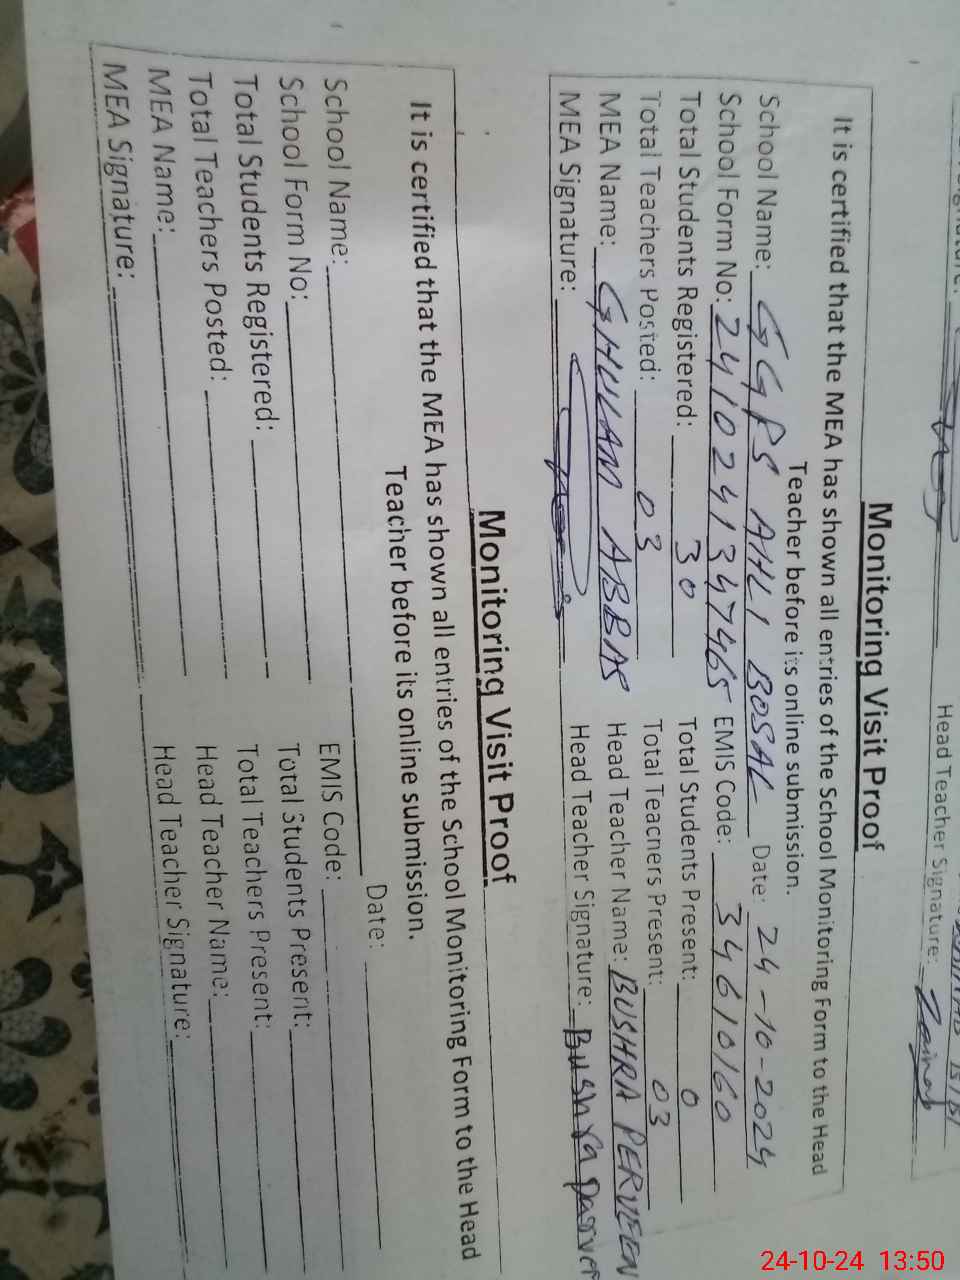 Head Teacher Signature: Zainab
Monitoring Visit Proof
It is certified that the MEA has shown all entries of the School Monitoring Form to the Head
Teacher before its online submission.
School Name: GGPS AHLI BOSAL Date: 24-10-2024
School Form No: 2410241347465 EMIS Code: 34610160
Total Students Registered: 30 Total Students Present: 0
Total Teachers Posted: 03 Total Teachers Present: 03
MEA Name: GHULAM ABBAS Head Teacher Name: BUSHRA PERVEEN
MEA Signature: Head Teacher Signature: Bushra Parveen
Monitoring Visit Proof
It is certified that the MEA has shown all entries of the School Monitoring Form to the Head
Teacher before its online submission.
School Name: Date:
School Form No: EMIS Code:
Total Students Registered: Total Students Present:
Total Teachers Posted: Total Teachers Present:
MEA Name: Head Teacher Name:
MEA Signature: Head Teacher Signature:
24-10-24 13:50